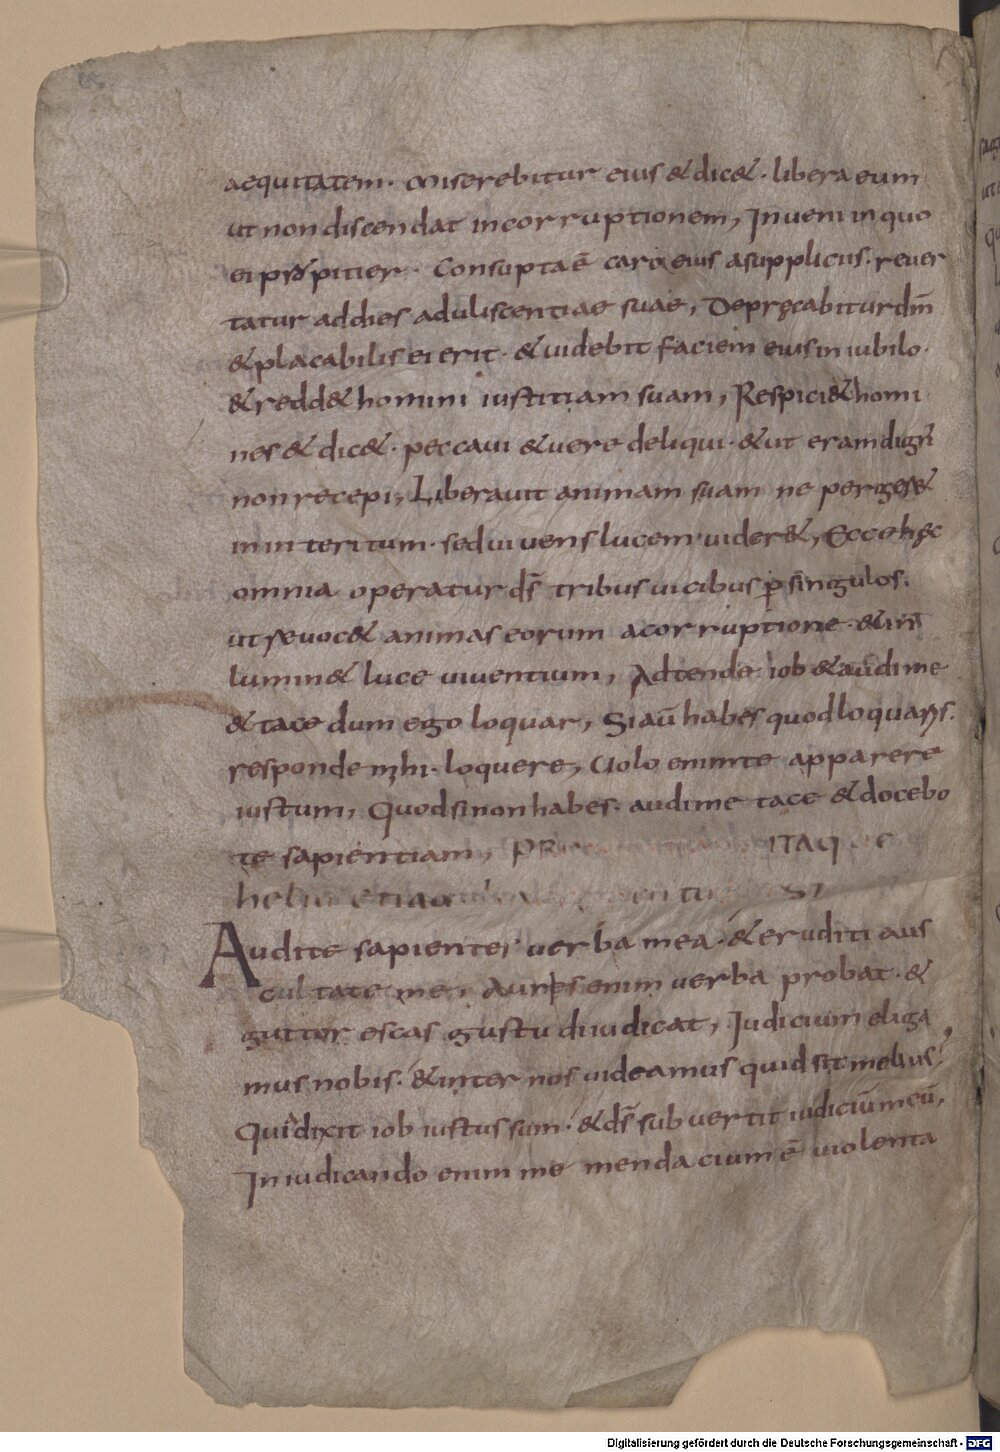 aequitatem · miserebitur eius & dic& · libera eum
ut non discendat in corruptionem, Inueni in quo
ei propitier · Consupta ē caro eius a supplicus · reuer
tatur ad dies aduliscentiae suae, Depręcabitur dm̄
& placabilis ei erit · & uidebit faciem eius in iubilo ·
& redd& homini iustitiam suam, Respici& homi
nes & dic& · peccaui & uere deliqui · & ut eram dign̄
non recepi, Liberauit animam suam ne perger&
in interitum · sed uiuens lucem uider&, Ecce hęc
omnia operatur ds̄ tribus uicibus p̱ singulos ·
ut reuoc& animas eorum a corruptione · & in
lumin& luce uiuentium, Adtende iob & audi me
& tace dum ego loquar, Si aū habes quod loquaris ·
responde mihi · loquere, Uolo enim te apparere
iustum, Quod si non habes · audi me tace & docebo
te sapientiam, ITAQUE
heliu etiam
Audite sapientes uerba mea · & eruditi aus
cultate me, Auris enim uerba probat · &
guttor escas gustu diiudicat, Iudicium eliga
mus nobis · & inter nos uideamus quid sit melius
Quia dixit iob iustus sum · & ds̄ subuertit iudiciū meū,
In iudicando enim me mendacium ē uiolenta
Digitalisierung gefördert durch die Deutsche Forschungsgemeinschaft - DFG